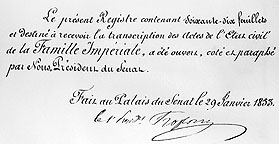 Le présent Registre contenant soixante-dix feuillets
et destiné à recevoir la transcription des Actes de l'Etat civil
de la Famille Impériale, a été ouvert, coté et paraphé
par Nous, Président du Sénat.
Fait au Palais du Sénat le 29 Janvier 1853.